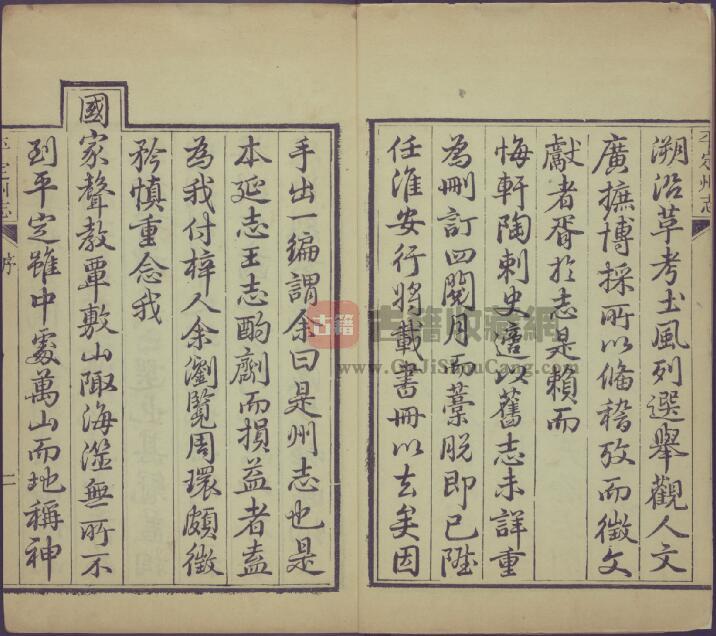 平定州志
溯沿革考土風列選舉觀人文
廣摭博採所以備稽攷而徵文
獻者胥於志是賴而
悔軒陶刺史蒞以舊志未詳重
為刪訂四閱月而藁脫即已陞
任淮安行將載書冊以去矣因
手出一編謂余曰是州志也是
本延志王志酌劑而損益者盍
為我付梓人余瀏覽周環頗徵
矜慎重念我
國家聲教覃敷山陬海澨無所不
到平定雖中處萬山而地稱神
平定州志
序
二
古籍
古籍收藏網
www.GuJiShouCang.com